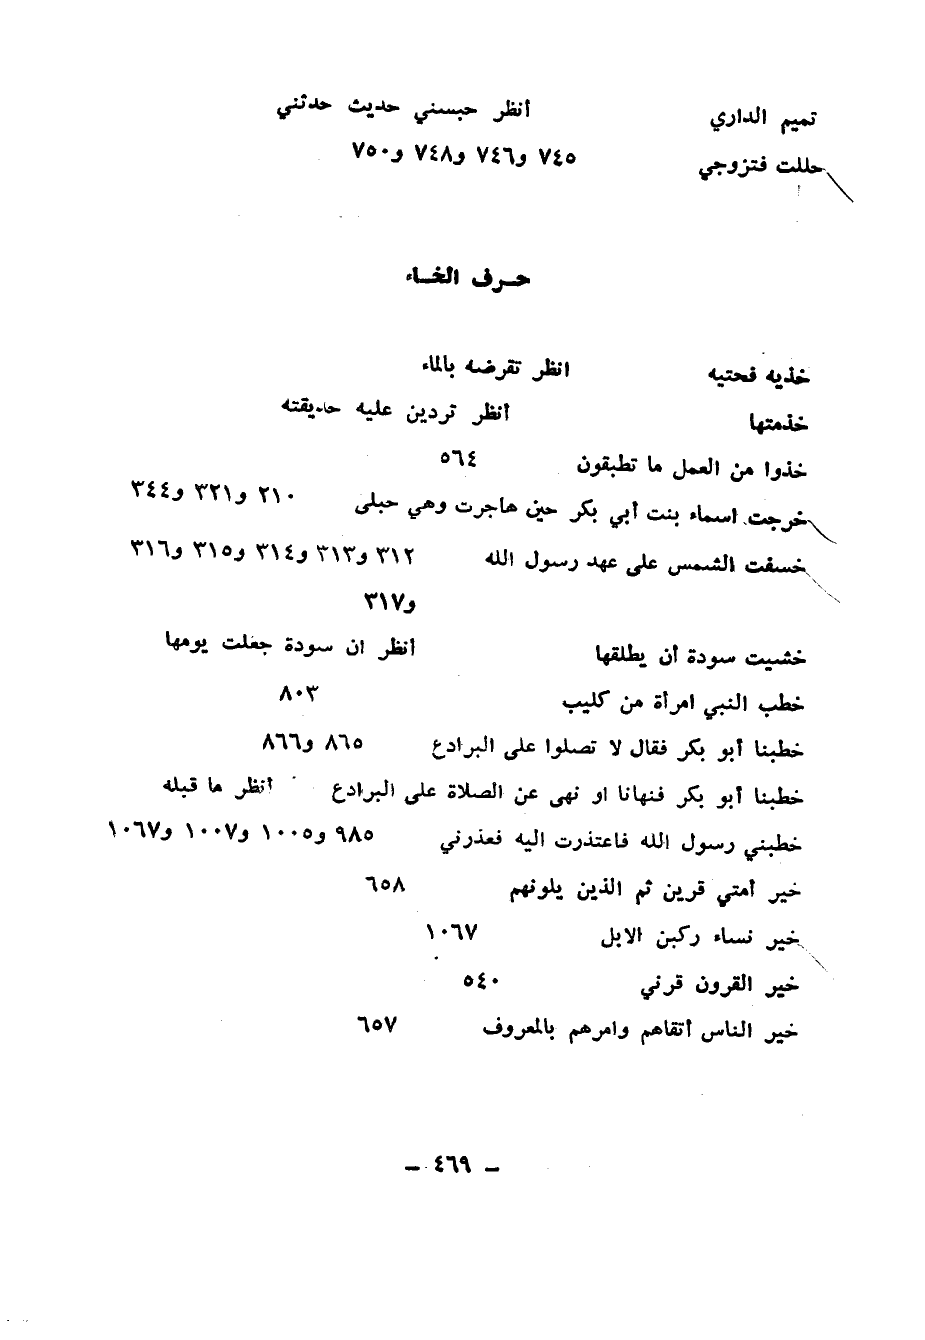 تميم الداري أنظر حبسني حديث حدثني
حللت فتزوجي ٧٤٥ و٧٤٦ و٧٤٨ و٧٥٠
حرف الخاء
خذيه فحتيه انظر تقرضه بالماء
خذمتها أنظر تردين عليه حديقته
خذوا من العمل ما تطبقون ٥٦٤
خرجت اسماء بنت أبي بكر حين هاجرت وهي حبلى ٢١٠ و٣٢١ و٣٤٤
خسفت الشمس على عهد رسول الله ٣١٢ و٣١٣ و٣١٤ و٣١٥ و٣١٦
و٣١٧
خشيت سودة أن يطلقها أنظر ان سودة جعلت يومها
خطب النبي امرأة من كليب ٨٠٣
خطبنا أبو بكر فقال لا تصلوا على البرادع ٨٦٥ و٨٦٦
خطبنا أبو بكر فنهانا او نهى عن الصلاة على البرادع أنظر ما قبله
خطبني رسول الله فاعتذرت اليه فعذرني ٩٨٥ و١٠٠٥ و١٠٠٧ و١٠٦٧
خير أمتي قرين ثم الذين يلونهم ٦٥٨
خير نساء ركبن الابل ١٠٦٧
خير القرون قرني ٥٤٠
خير الناس أتقاهم وامرهم بالمعروف ٦٥٧
— ٤٦٩ —